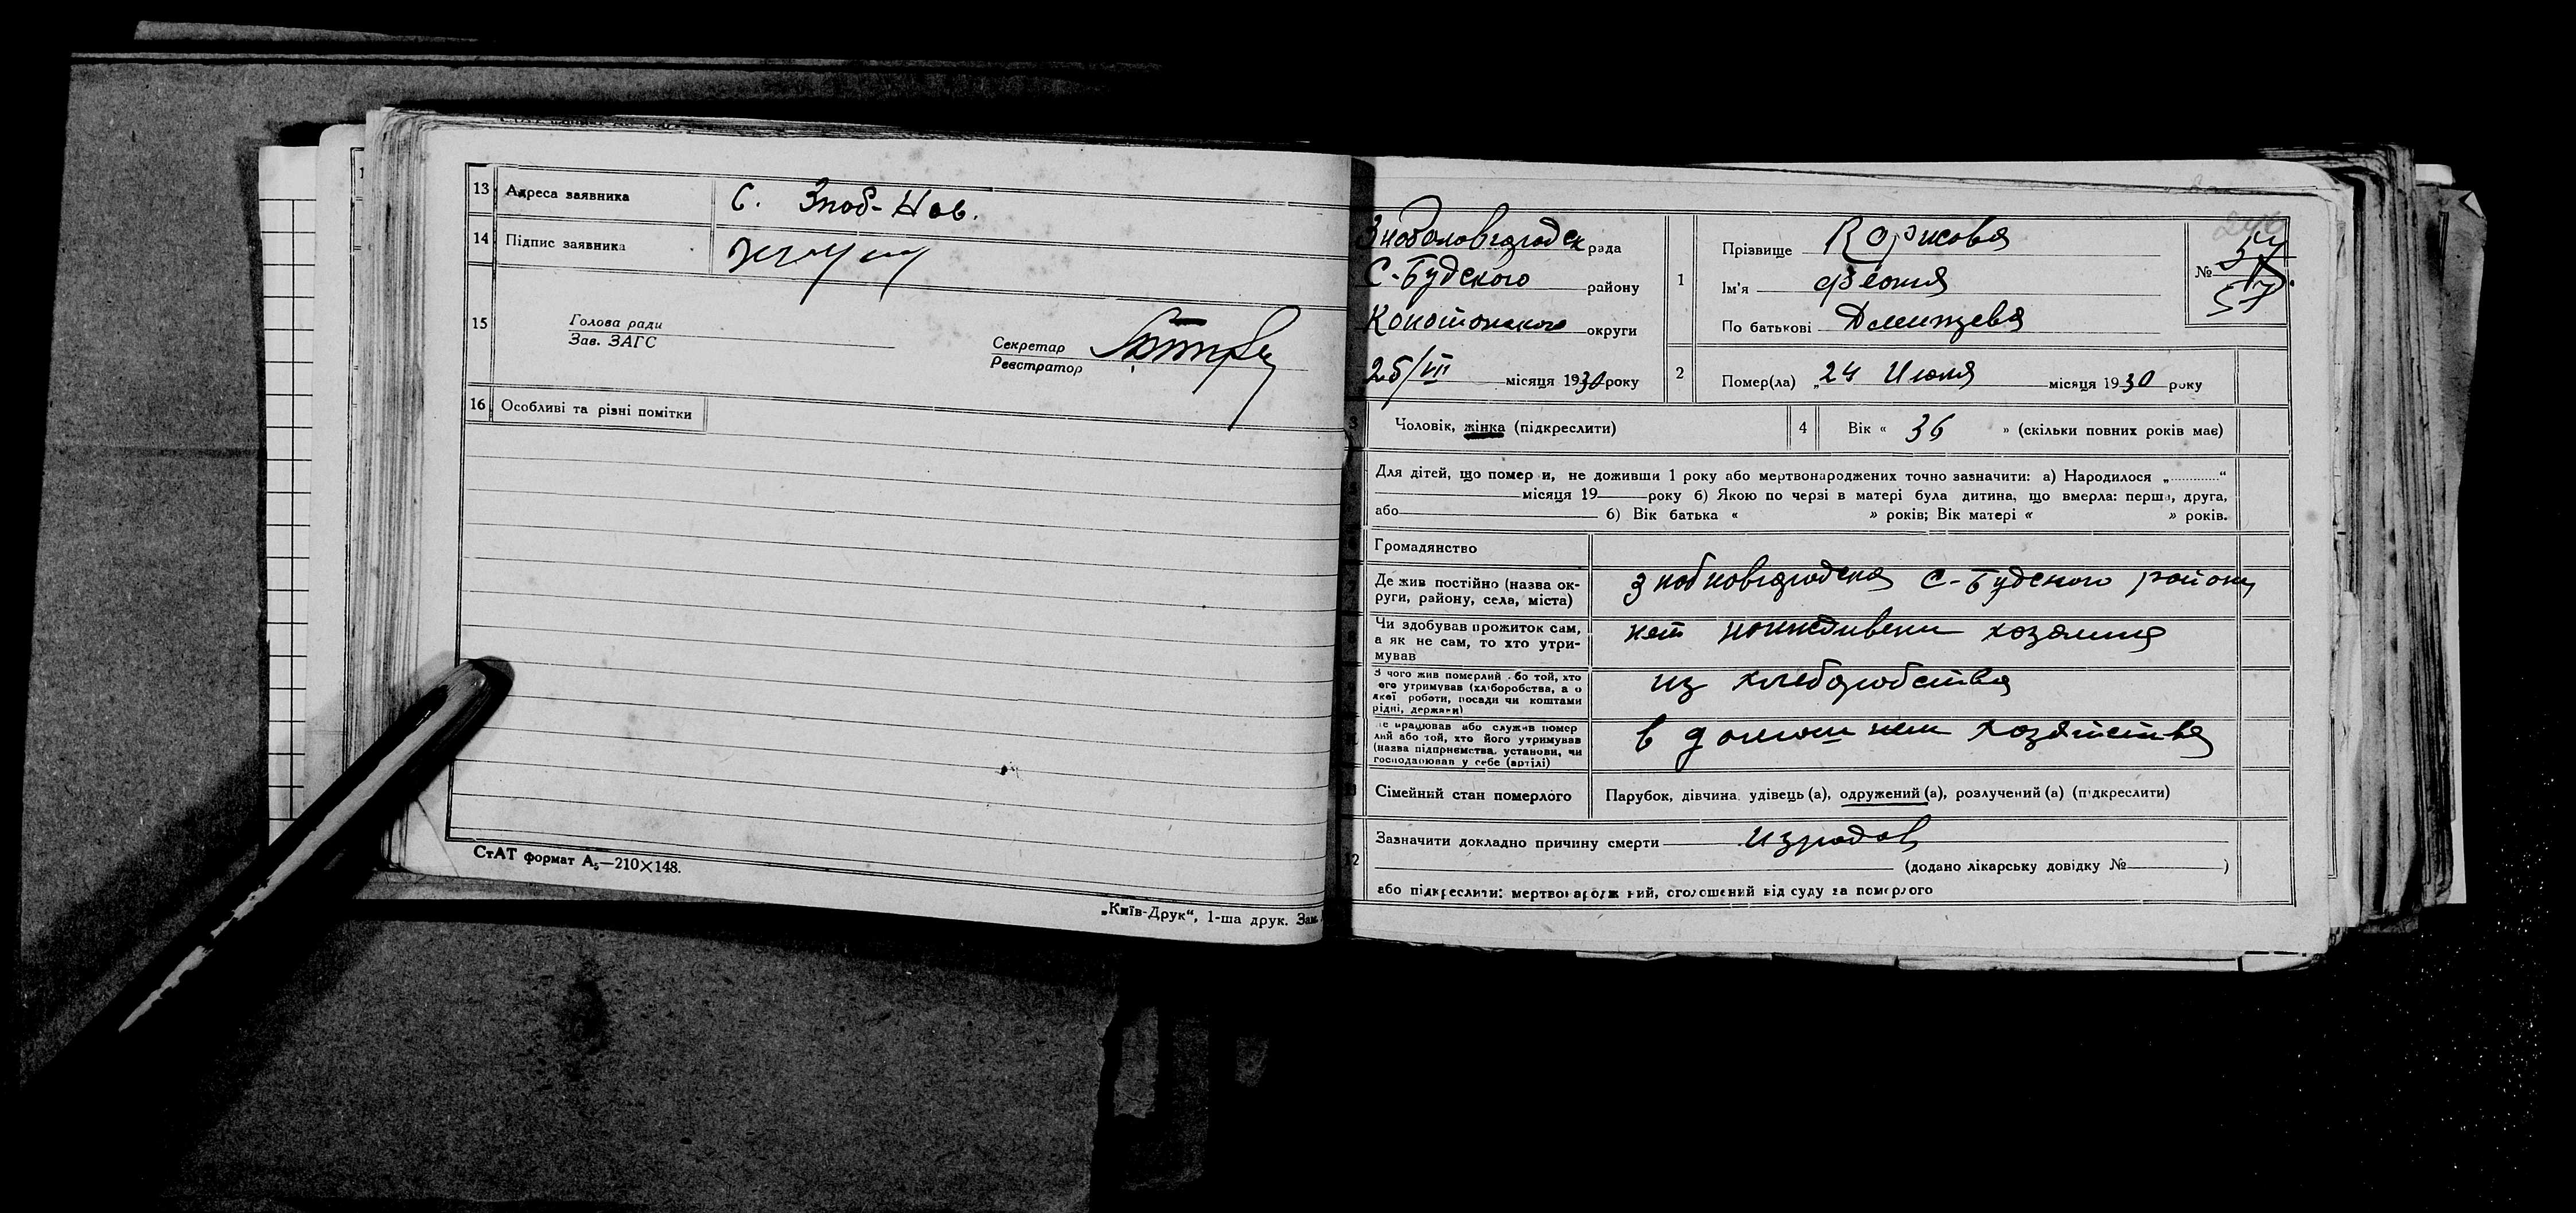 13 Адреса заявника С. Зноб-Нов.
14 Підпис заявника
15 Голова ради
Зав. ЗАГС
Секретар
Реєстратор
16 Особливі та різні помітки
СтАТ формат А₅—210×148.
„Київ-Друк“, 1-ша друк. Зам.
Знобоновгородск рада
С-Будского району
Конотопского округи
25/VII місяця 1930 року
1 Прізвище
Ім'я
По батькові
№ 57
2 Помер(ла) „24 Июля місяця 1930 року
3 Чоловік, жінка (підкреслити) 4 Вік « 36 » (скільки повних років має)
Для дітей, що помер и, не доживши 1 року або мертвонароджених точно зазначити: а) Народилося „............“
місяця 19 року б) Якою по черзі в матері була дитина, що вмерла: перша, друга,
або б) Вік батька « » років; Вік матері « » років.
Громадянство
Де жив постійно (назва ок-
руги, району, села, міста) С-Будского району
Чи здобував прожиток сам,
а як не сам, то хто утри-
мував нет
З чого жив померлий або той, хто
його утримував (хліборобства, а о
якої роботи, посади чи коштами
рідні, держави) из хлеборобства
Де працював або служив помер
лий або той, хто його утримував
(назва підприємства, установи, чи
господарював у себе (артілі) в домашнем хозяйстве
Сімейний стан померлого Парубок, дівчина, удівець (а), одружений (а), розлучений (а) (підкреслити)
12 Зазначити докладно причину смерти из родов
(додано лікарську довідку № )
або підкреслити: мертвонароджений, оголошений від суду за померлого